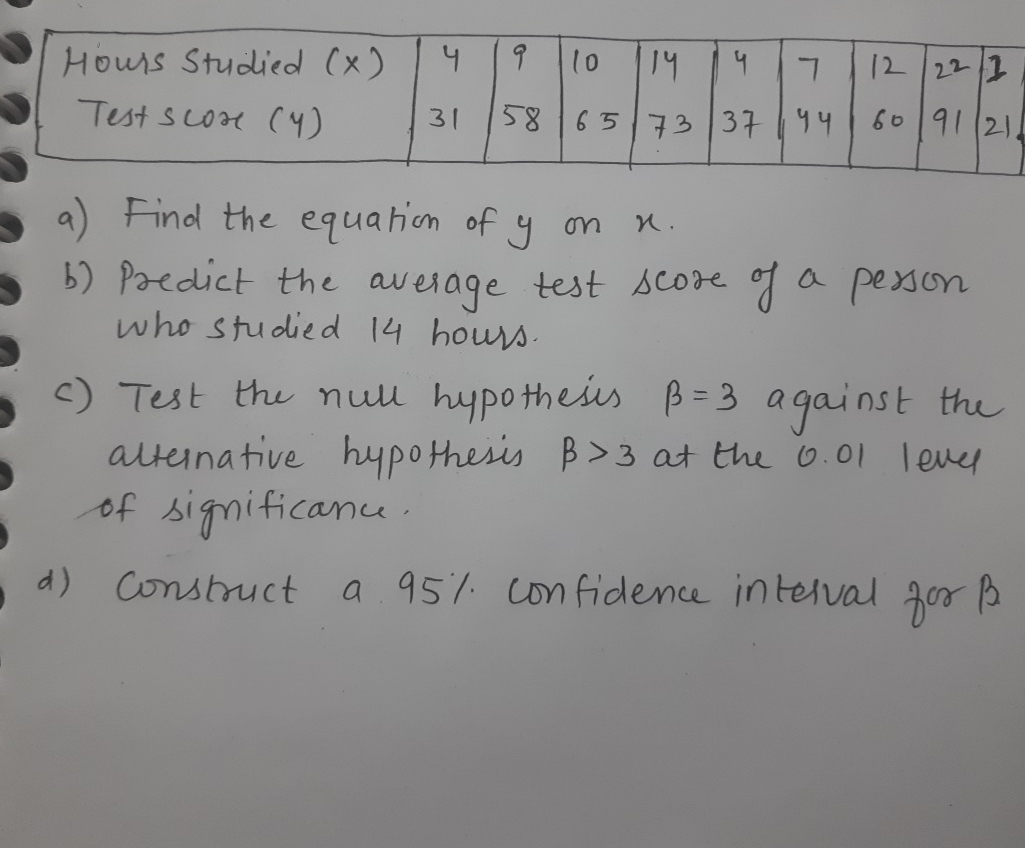 Hours Studied (x) 4 9 10 14 4 7 12 22 1
Test score (y) 31 58 65 73 37 44 60 91 21
a) Find the equation of y on x.
b) Predict the average test score of a person
who studied 14 hours.
c) Test the null hypothesis β=3 against the
alternative hypothesis β>3 at the 0.01 level
of significance.
d) Construct a 95% confidence interval for β